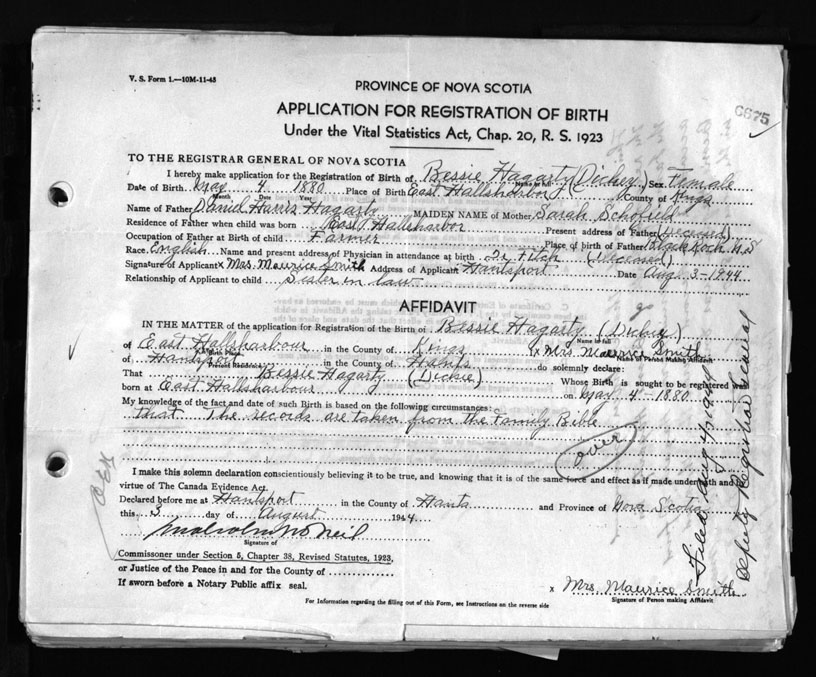 V. S. Form 1.—10M-11-43
PROVINCE OF NOVA SCOTIA
6675
APPLICATION FOR REGISTRATION OF BIRTH
Under the Vital Statistics Act, Chap. 20, R. S. 1923
TO THE REGISTRAR GENERAL OF NOVA SCOTIA
I hereby make application for the Registration of Birth of Bessie Hagarty (Dickie) Sex Female
Name in full
Date of Birth May 4 1880 Place of Birth East Hallsharbor County of Kings
Month Date Year
Name of Father Daniel Harris Hagarty MAIDEN NAME of Mother Sarah Schofield
Residence of Father when child was born East Hallsharbor Present address of Father (Deceased)
Occupation of Father at Birth of child Farmer Place of birth of Father Black Rock N.S
Race English Name and present address of Physician in attendance at birth Dr Fitch (Deceased)
Signature of Applicant x Mrs. Maurice Smith Address of Applicant Hantsport Date Aug 3-1944
Relationship of Applicant to child Sister in law
AFFIDAVIT
IN THE MATTER of the application for Registration of the Birth of Bessie Hagarty (Dickie)
Name in full
of East Hallsharbour in the County of Kings Mrs. Maurice Smith
Birth Place
Name of Person Making Affidavit
of Hantsport in the County of Hants do solemnly declare:
Present Residence
That Bessie Hagarty (Dickie) Whose Birth is sought to be registered was
born at East Hallsharbour on May 4-1880
My knowledge of the fact and date of such Birth is based on the following circumstances:
That The records are taken from the Family Bible
over
I make this solemn declaration conscientiously believing it to be true, and knowing that it is of the same force and effect as if made under oath and by
virtue of The Canada Evidence Act.
Declared before me at Hantsport in the County of Hants and Province of Nova Scotia
this 3 day of August 1944
Malcolm McNeil
Signature of
Commissioner under Section 5, Chapter 38, Revised Statutes, 1923,
or Justice of the Peace in and for the County of
If sworn before a Notary Public affix seal.
x Mrs. Maurice Smith
Signature of Person making Affidavit
For Information regarding the filling out of this Form, see Instructions on the reverse side
Filed Aug 4/1944
Deputy Registrar General